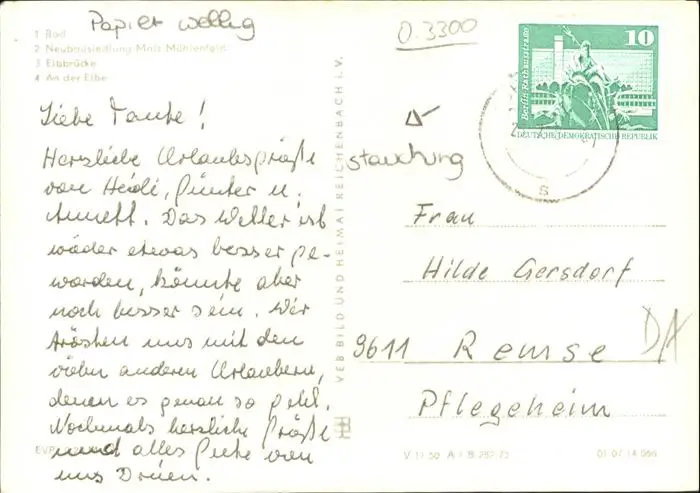 Papier wellig
0.3300
1 Bad
2 Neubausiedlung Molz Mühlenfeld
3 Elbbrücke
4 An der Elbe
Liebe Tante!
Herzliche Urlaubsgrüße
von Heidi, Günter u.
Annett. Das Wetter ist
wieder etwas besser ge-
worden, könnte aber
noch besser sein. Wir
trösten uns mit den
vielen anderen Urlaubern,
denen es genau so geht.
Nochmals herzliche Grüße
und alles Gute von
uns Dreien.
EVP
VEB BILD UND HEIMAT REICHENBACH I. V.
stauchung
10
Berlin, Rathausstraße
DEUTSCHE DEMOKRATISCHE REPUBLIK
Frau
Hilde Gersdorf
9611 Remse
Pflegeheim
V 11 50 A 1 B 282 73
01 07 14 066